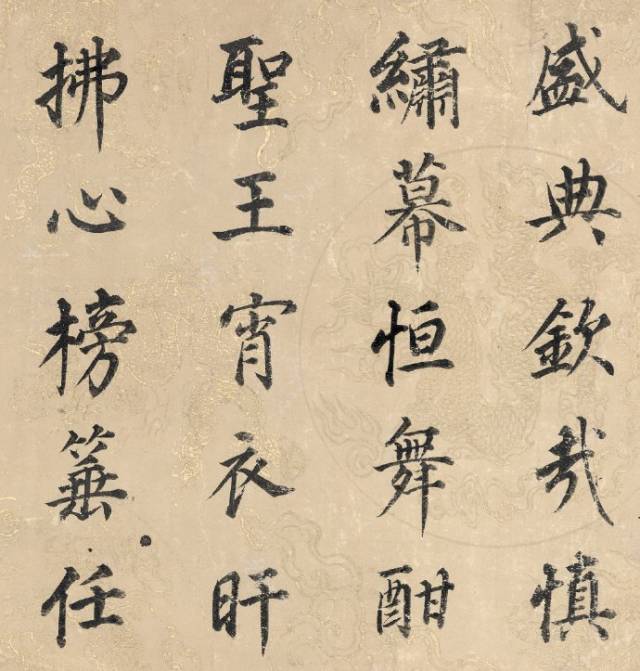 盛典欽哉慎
繡幕恒舞酣
聖王宵衣旰
拂心榜箠任